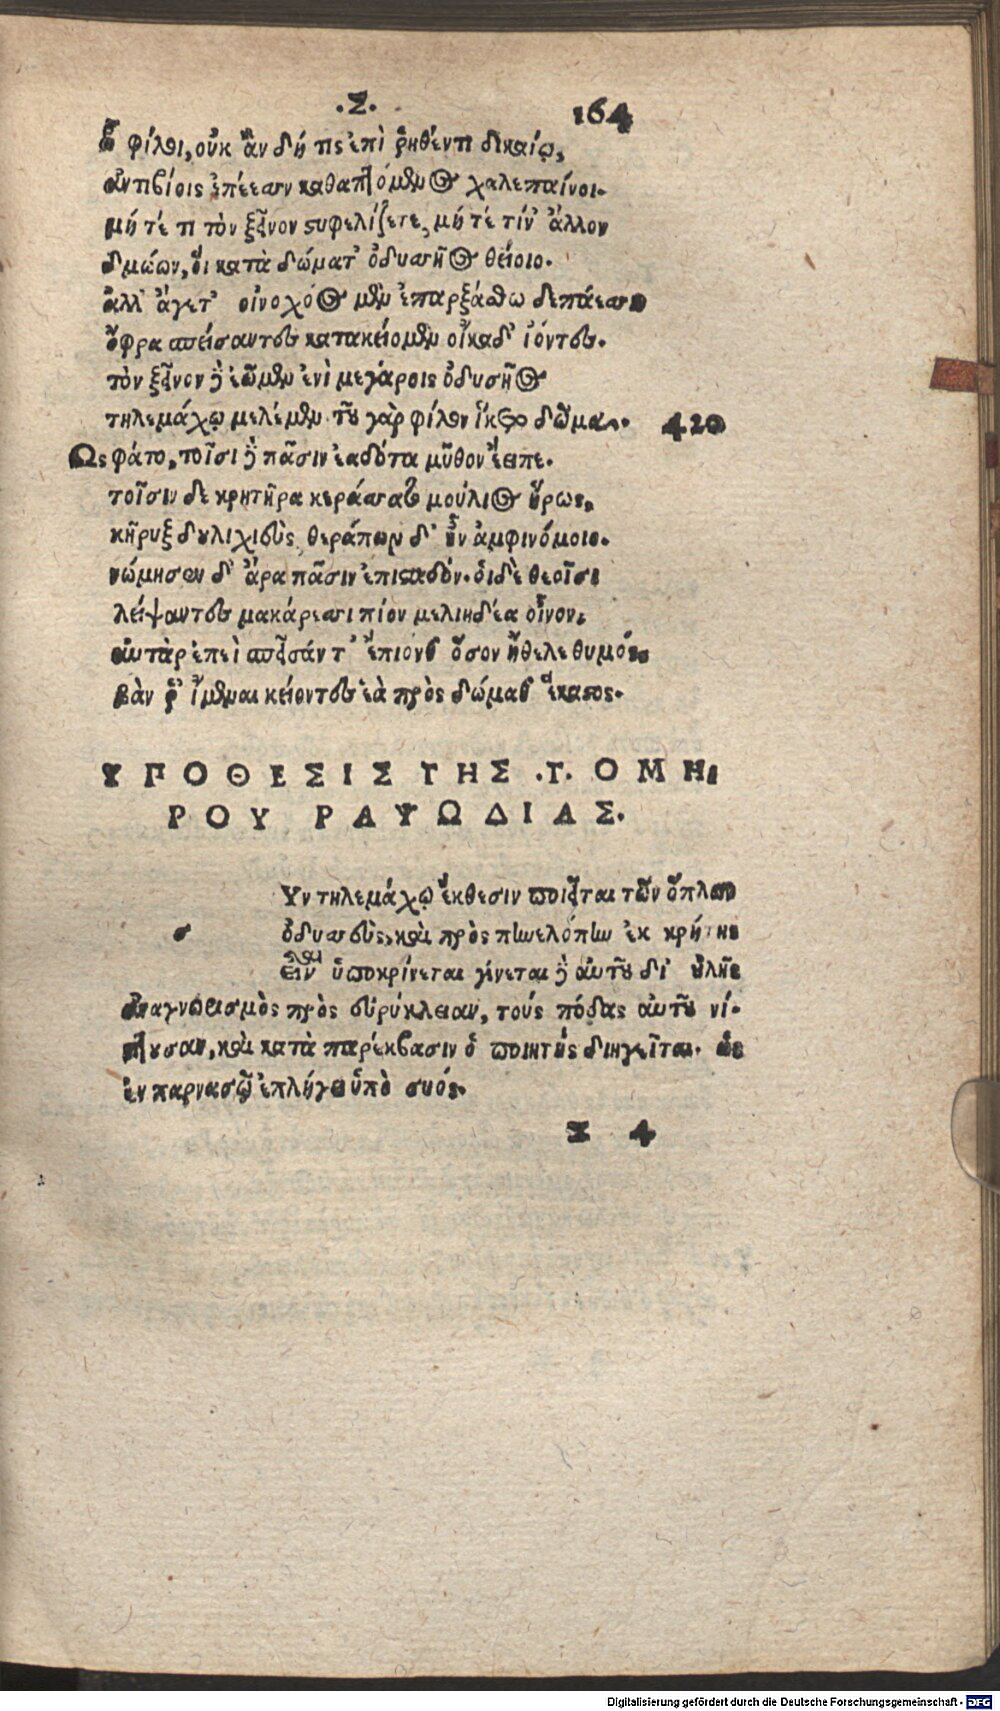 .Σ. 164
ὦ φίλοι, οὐκ ἂν δή τις ἐπὶ ῥηθέντι δικαίῳ,
ἀντιβίοις ἐπέεσσιν καθαπτόμενος χαλεπαίνοι.
μή τέ τι τὸν ξεῖνον στυφελίζετε, μή τέ τιν' ἄλλον
δμώων, οἳ κατὰ δώματ' ὀδυσσῆος θείοιο.
ἀλλ' ἄγετ' οἰνοχόος μὲν ἐπαρξάσθω δεπάεσσιν
ὄφρα σπείσαντες κατακείομεν οἴκαδ' ἰόντες.
τὸν ξεῖνον δὲ ἐῶμεν ἐνὶ μεγάροις ὀδυσῆος
τηλεμάχῳ μελέμεν· τοῦ γὰρ φίλον ἵκετο δῶμα. 420
Ως φάτο, τοῖσι δὲ πᾶσιν ἑαδότα μῦθον ἔειπε.
τοῖσιν δὲ κρητῆρα κεράσσατο μούλιος ἥρως,
κῆρυξ δουλιχιεὺς, θεράπων δ' ἦν ἀμφινόμοιο.
νώμησεν δ' ἄρα πᾶσιν ἐπισταδόν. οἱ δὲ θεοῖσι
λείψαντες μακάρεσσι πίον μελιηδέα οἶνον,
αὐτὰρ ἐπεὶ σπεῖσάν τ' ἔπιόν θ' ὅσον ἤθελε θυμός,
βὰν ῥ' ἴμεναι κείοντες ἑὰ πρὸς δώμαθ' ἕκαστος.
ΥΠΟΘΕΣΙΣ ΤΗΣ .Τ. ΟΜΗ,
ΡΟΥ ΡΑΨΩΔΙΑΣ.
σ Υν τηλεμάχῳ ἔκθεσιν ποιεῖται τῶν ὅπλων
ὀδυσσεὺς, καὶ πρὸς πηνελόπην ἐκ κρήτης
εἶναι ὑποκρίνεται γίνεται δὲ αὐτοῦ δι' οὐλῆς
ἀναγνωρισμὸς πρὸς εὐρύκλειαν, τοὺς πόδας αὐτοῦ νί-
πτουσαν, καὶ κατὰ παρέκβασιν ὁ ποιητὴς διηγεῖται. ὡς
ἐν παρνασῷ ἐπλήγη ὑπὸ συός.
X 4
Digitalisierung gefördert durch die Deutsche Forschungsgemeinschaft - DFG